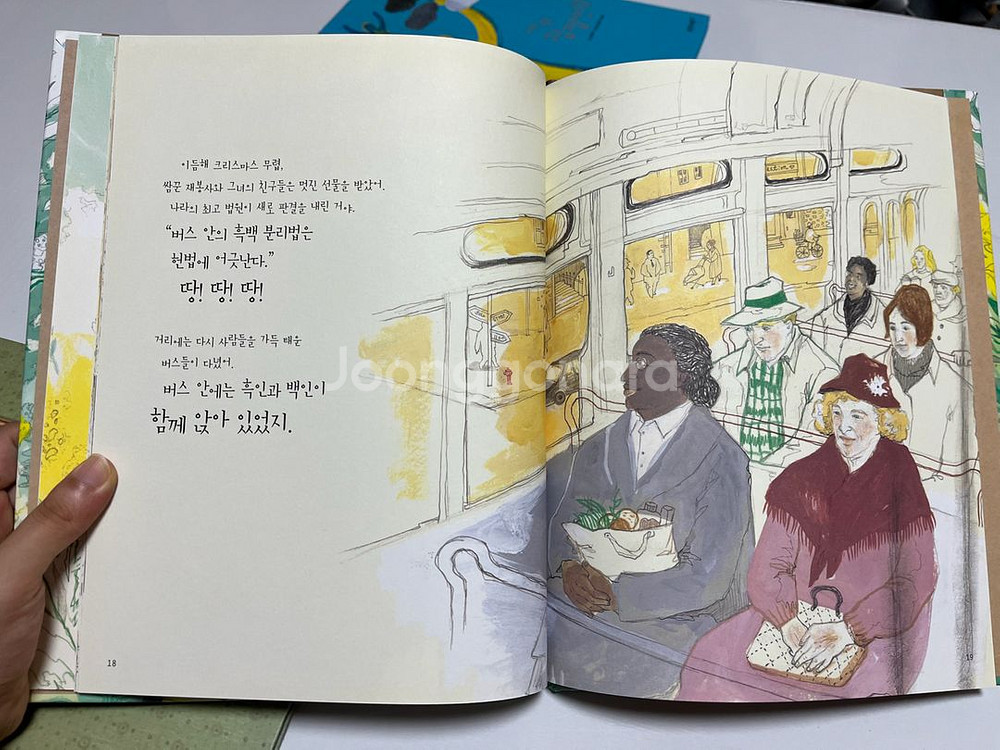 이듬해 크리스마스 무렵,
쌈꾼 재봉사와 그녀의 친구들은 멋진 선물을 받았어.
나라의 최고 법원이 새로 판결을 내린 거야.
“버스 안의 흑백 분리법은
헌법에 어긋난다.”
땅! 땅! 땅!
거리에는 다시 사람들을 가득 태운
버스들이 다녔어.
버스 안에는 흑인과 백인이
함께 앉아 있었지.
Joonggonara
18
19